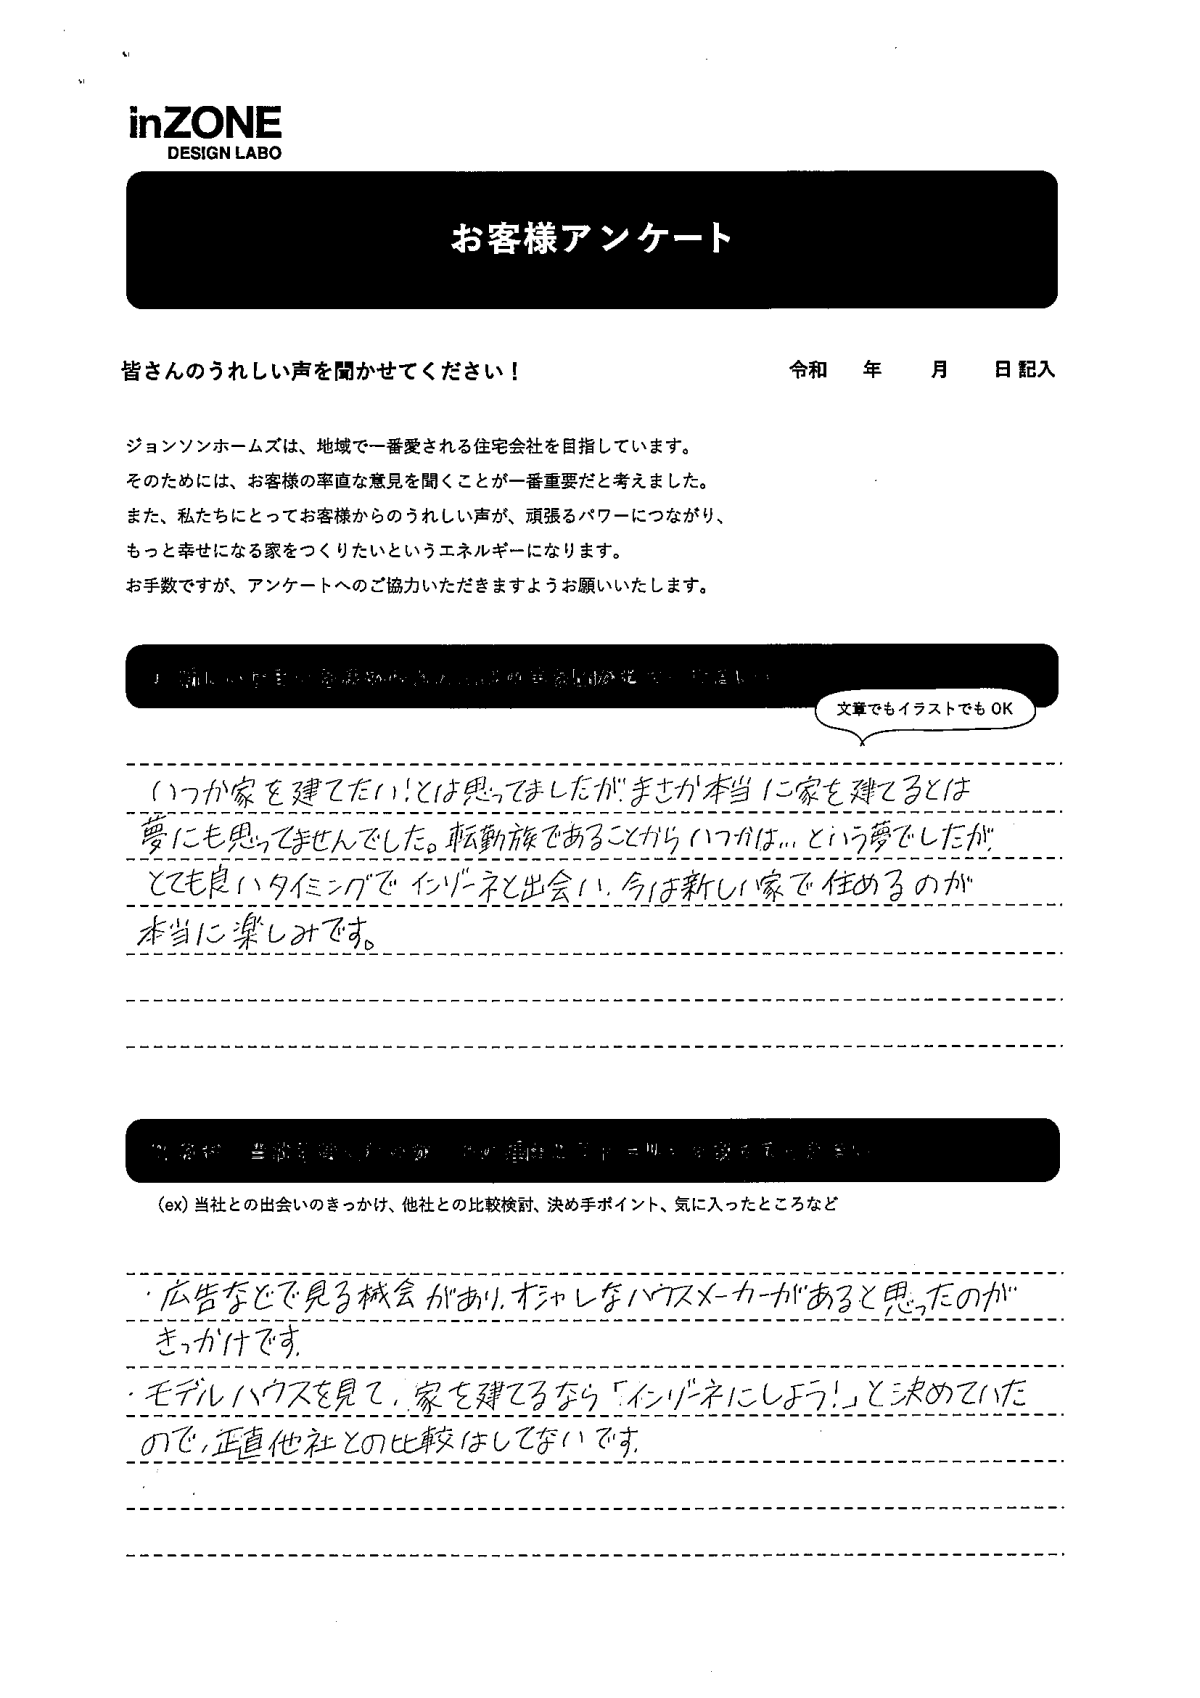 inZONE
DESIGN LABO
お客様アンケート
皆さんのうれしい声を聞かせてください！
令和 年 月 日 記入
ジョンソンホームズは、地域で一番愛される住宅会社を目指しています。
そのためには、お客様の率直な意見を聞くことが一番重要だと考えました。
また、私たちにとってお客様からのうれしい声が、頑張るパワーにつながり、
もっと幸せになる家をつくりたいというエネルギーになります。
お手数ですが、アンケートへのご協力いただきますようお願いいたします。
文章でもイラストでもOK
いつか家を建てたい！とは思ってましたが、まさか本当に家を建てるとは
夢にも思ってませんでした。転勤族であることからいつかは…という夢でしたが、
とても良いタイミングでインゾーネと出会い、今は新しい家で住めるのが
本当に楽しみです。
（ex）当社との出会いのきっかけ、他社との比較検討、決め手ポイント、気に入ったところなど
・広告などで見る機会があり、オシャレなハウスメーカーがあると思ったのが
きっかけです。
・モデルハウスを見て、家を建てるなら「インゾーネにしよう！」と決めていた
ので、正直他社との比較はしてないです。